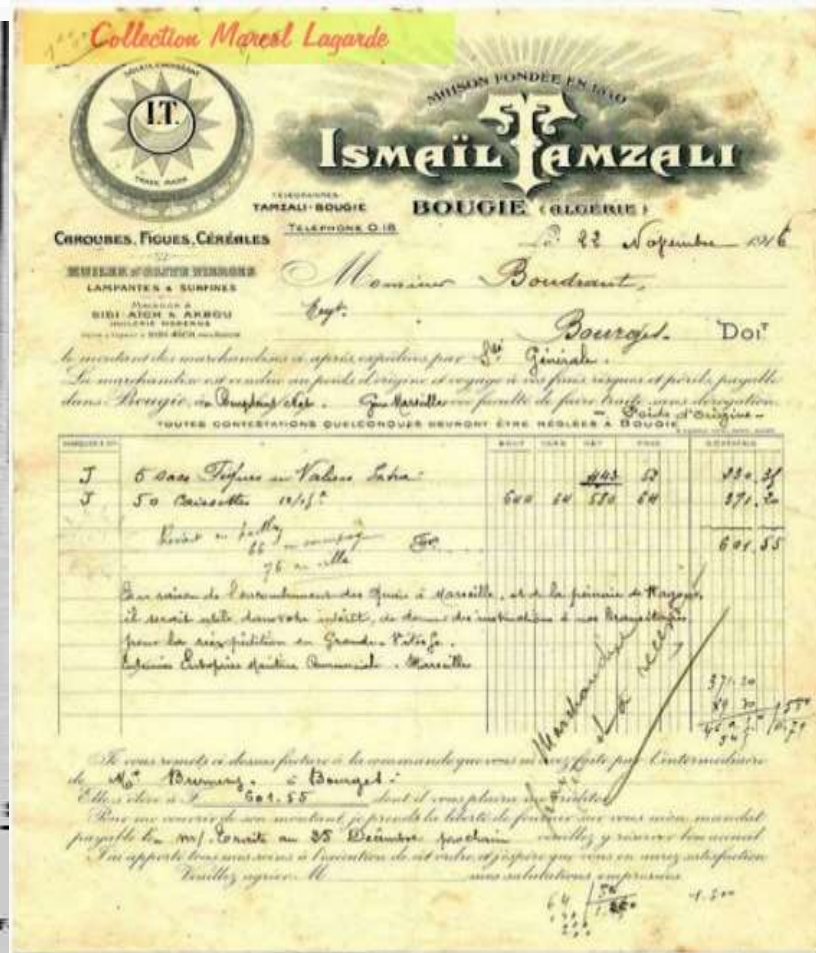 Collection Marcel Lagarde
SOLEIL CROISSANT
I.T.
TRADE MARK
MAISON FONDÉE EN
ISMAÏL TAMZALI
TÉLÉGRAMMES
TAMZALI-BOUGIE
TÉLÉPHONE 0.18
BOUGIE (ALGÉRIE)
CAROUBES, FIGUES, CÉRÉALES
HUILES D'OLIVE VIERGES
LAMPANTES & SURFINES
MAISONS À
SIDI-AÏCH & AKBOU
HUILERIE MODERNE
Le 22 Novembre 1916
Monsieur Boudraut,
Bourges. DOIT
le montant des marchandises ci-après expédiées par Sté Générale.
La marchandise est vendue au poids d'origine et voyage à vos frais risques et périls, payable
dans Bougie, ou faculté de faire traite sans dérogation.
Poids d'origine
TOUTES CONTESTATIONS QUELCONQUES DEVRONT ÊTRE RÉGLÉES À BOUGIE
BRUT TARE NET PRIX
J 5 sacs Figues en Valises Extra 443 52 230.35
J 50 Caissettes 640 64 580 64 371.20
601.55
En raison de l'encombrement des Quais à Marseille, et de la pénurie de Wagons,
il serait utile dans votre intérêt, de donner des instructions à nos transitaires
pour la réexpédition en Grande Vitesse.
Marseille
Marchandise
371.20
Je vous remets ci-dessus facture à la commande que vous m'avez faite par l'intermédiaire
de Mr à Bourges.
Elle s'élève à F 601.55 dont il vous plaira me créditer
Pour me couvrir de son montant, je prends la liberté de fournir sur vous mon mandat
payable le m/. Traite au 25 Décembre prochain veuillez y réserver bon accueil
J'ai apporté tous mes soins à l'exécution de cet ordre, et j'espère que vous en aurez satisfaction
Veuillez agréer M mes salutations empressées